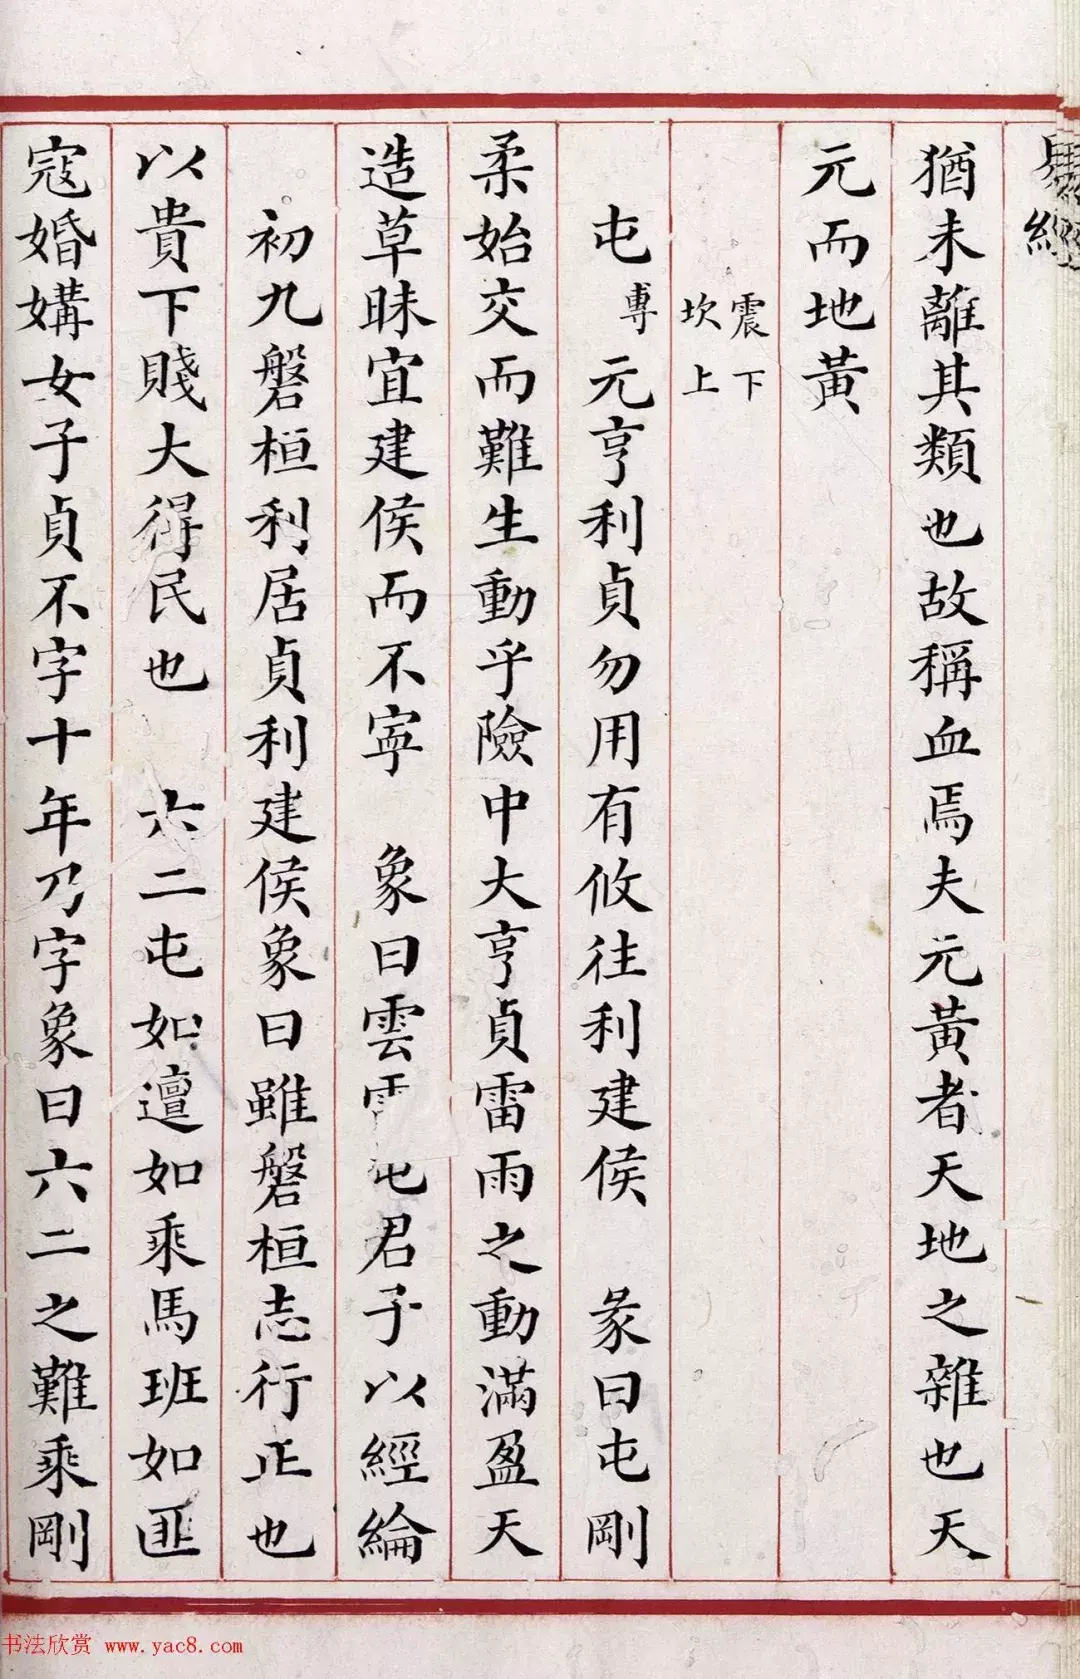 經
猶未離其類也故稱血焉夫元黃者天地之雜也天
元而地黃
震下
坎上
屯專元亨利貞勿用有攸往利建侯 彖曰屯剛
柔始交而難生動乎險中大亨貞雷雨之動滿盈天
造草昧宜建侯而不寧 象曰雲雷屯君子以經綸
初九磐桓利居貞利建侯象曰雖磐桓志行正也
以貴下賤大得民也 六二屯如邅如乘馬班如匪
寇婚媾女子貞不字十年乃字象曰六二之難乘剛
书法欣赏 www.yac8.com